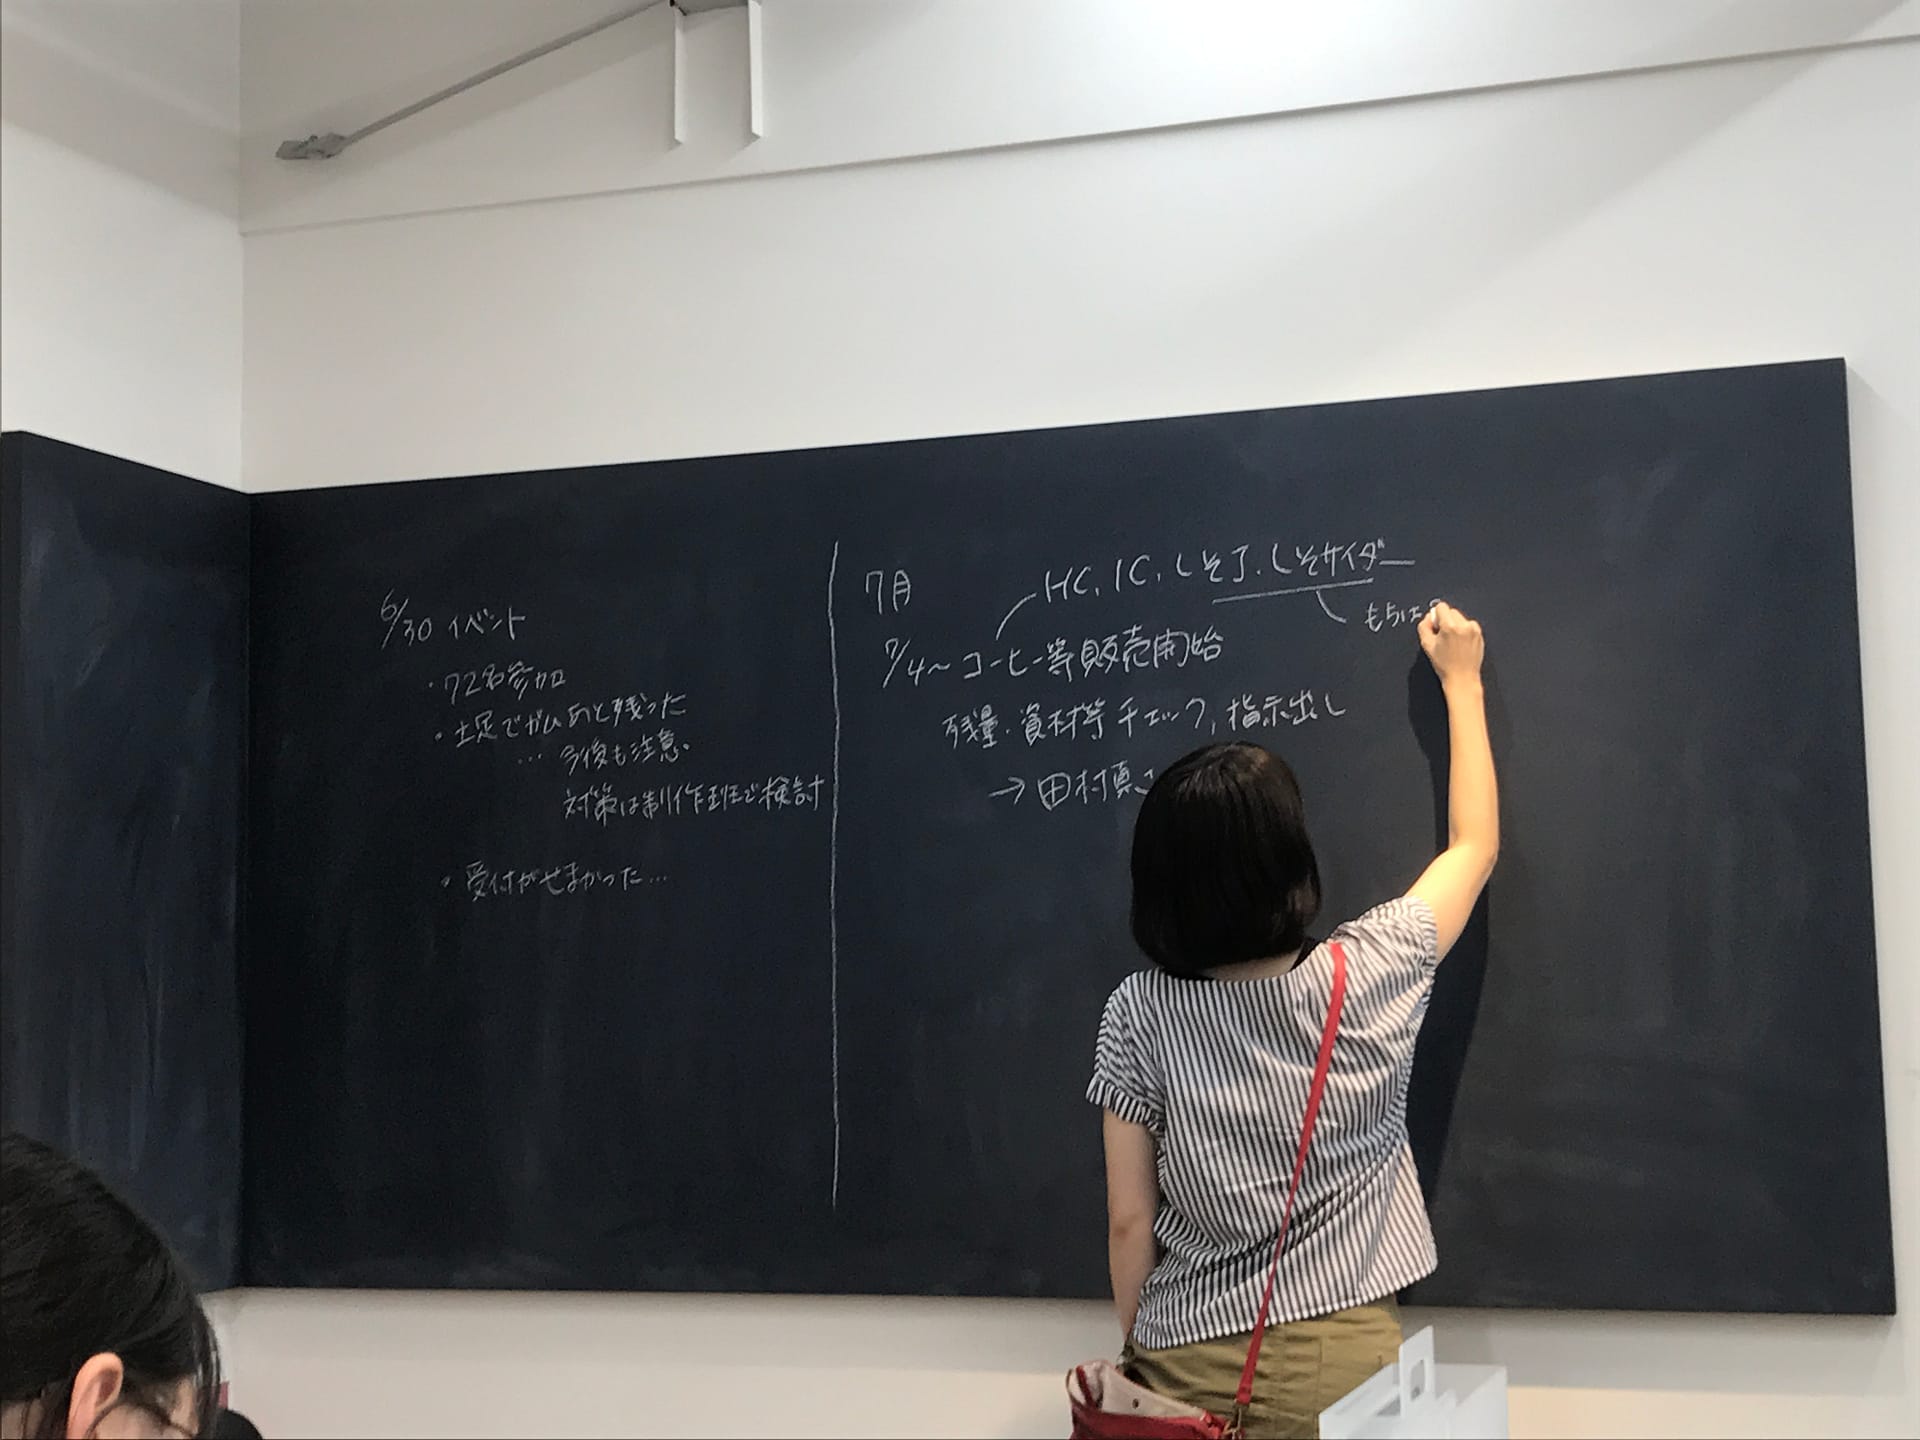 6/30 イベント
・72名参加
・土足でガムあと残った
… 今後も注意。
対策は制作班で検討
・受付がせまかった…
7月
HC, IC, しそ, しそサイダー
もちは
7/4～コーヒー等販売開始
残量・資材等チェック, 指示出し
→田村真さ